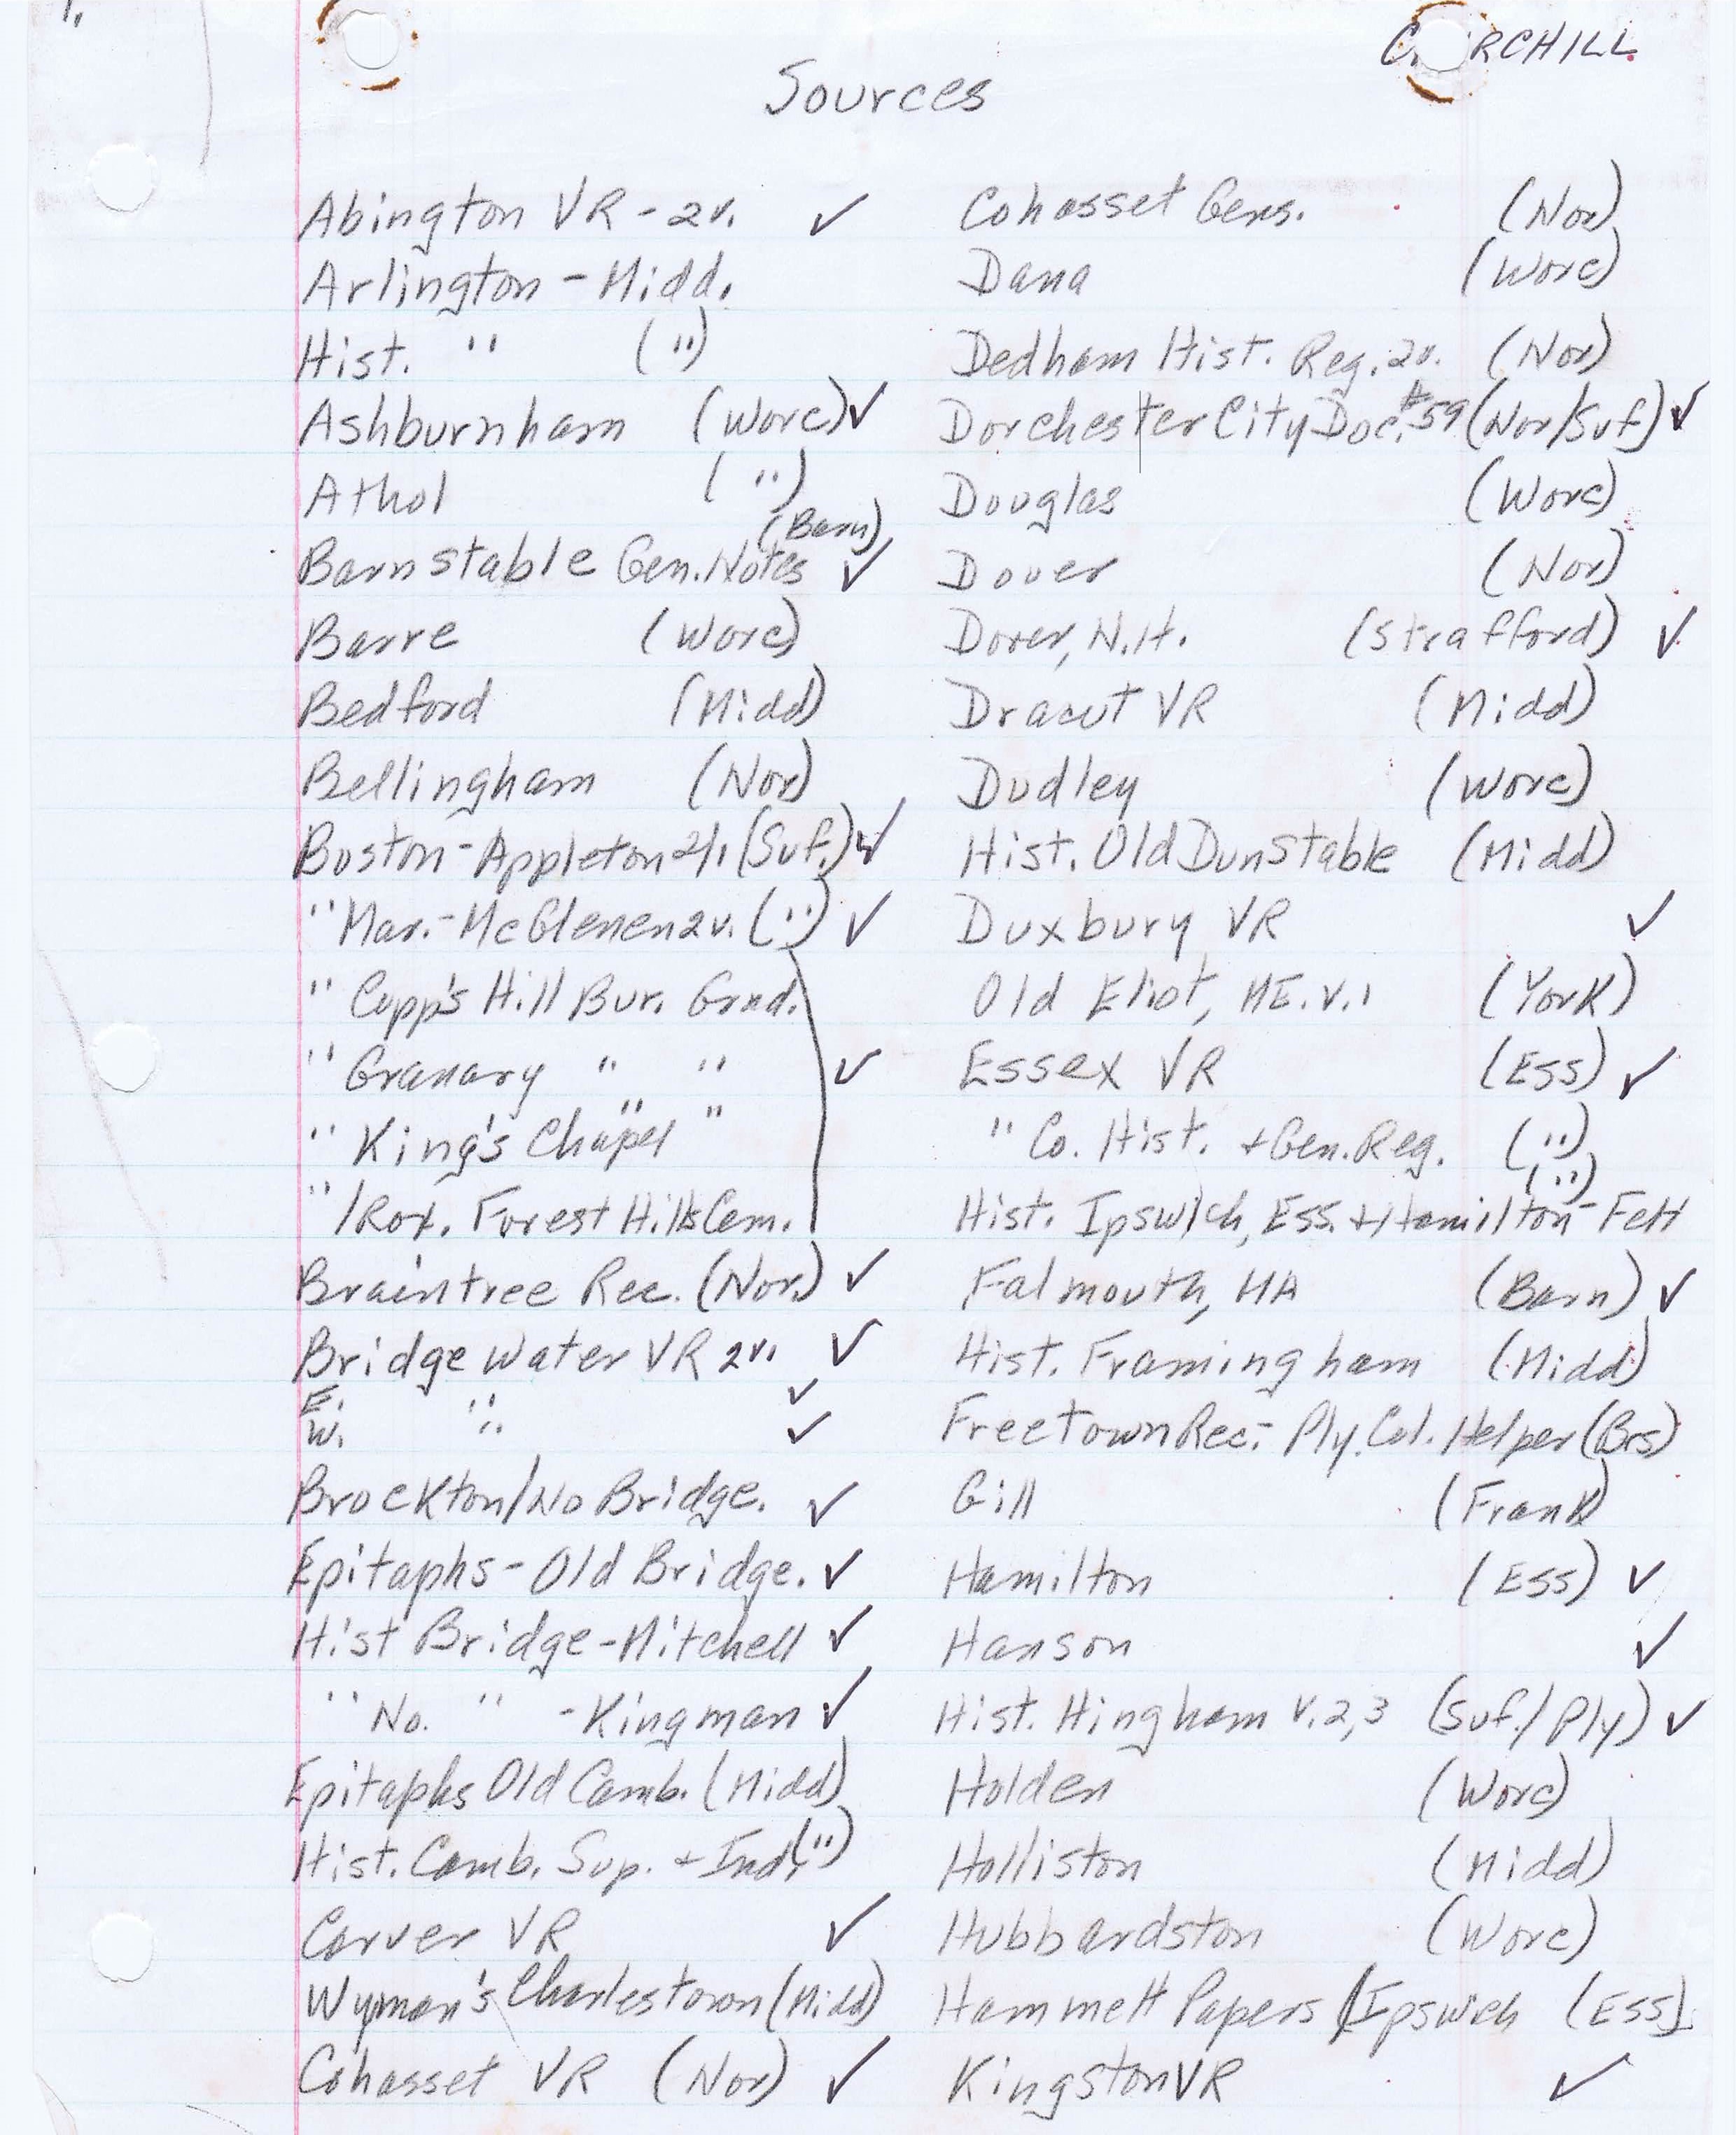 1.
C RCHILL
Sources
Abington VR - 2v. ✓
Arlington - Midd.
Hist. " (")
Ashburnham (Worc) ✓
Athol (")
(Barn)
Barnstable Gen. Notes ✓
Barre (Worc)
Bedford (Midd)
Bellingham (Nor)
Boston - Appleton 2v. (Suf.) ✓
" Mar. - McGlenen 2v. (") ✓
" Copp's Hill Bur. Grnd.
" Granary " " ✓
" King's Chapel " "
" /Rox. Forest Hills Cem.
Braintree Rec. (Nor.) ✓
Bridgewater VR 2v. ✓
E. " ✓
W. " ✓
Brockton/No Bridge. ✓
Epitaphs - Old Bridge. ✓
Hist Bridge - Mitchell ✓
" No. " - Kingman ✓
Epitaphs Old Camb. (Midd)
Hist. Camb. Sup. + Ind. (")
Carver VR ✓
Wyman's Charlestown (Midd)
Cohasset VR (Nor) ✓
Cohasset Gens. (Nor)
Dana (Worc)
Dedham Hist. Reg. 2v. (Nor)
Dorchester City Doc. #59 (Nor/Suf) ✓
Douglas (Worc)
Dover (Nor)
Dover, N.H. (Strafford) ✓
Dracut VR (Midd)
Dudley (Worc)
Hist. Old Dunstable (Midd)
Duxbury VR ✓
Old Eliot, ME. v.1 (York)
Essex VR (Ess) ✓
" Co. Hist. + Gen. Reg. (")
(")
Hist. Ipswich, Ess. + Hamilton - Felt
Falmouth, MA (Barn) ✓
Hist. Framingham (Midd)
Freetown Rec. - Ply. Col. Helper (Brs)
Gill (Frank)
Hamilton (Ess) ✓
Hanson ✓
Hist. Hingham V. 2,3 (Suf./Ply) ✓
Holden (Worc)
Holliston (Midd)
Hubbardston (Worc)
Hammett Papers /Ipswich (Ess)
Kingston VR ✓